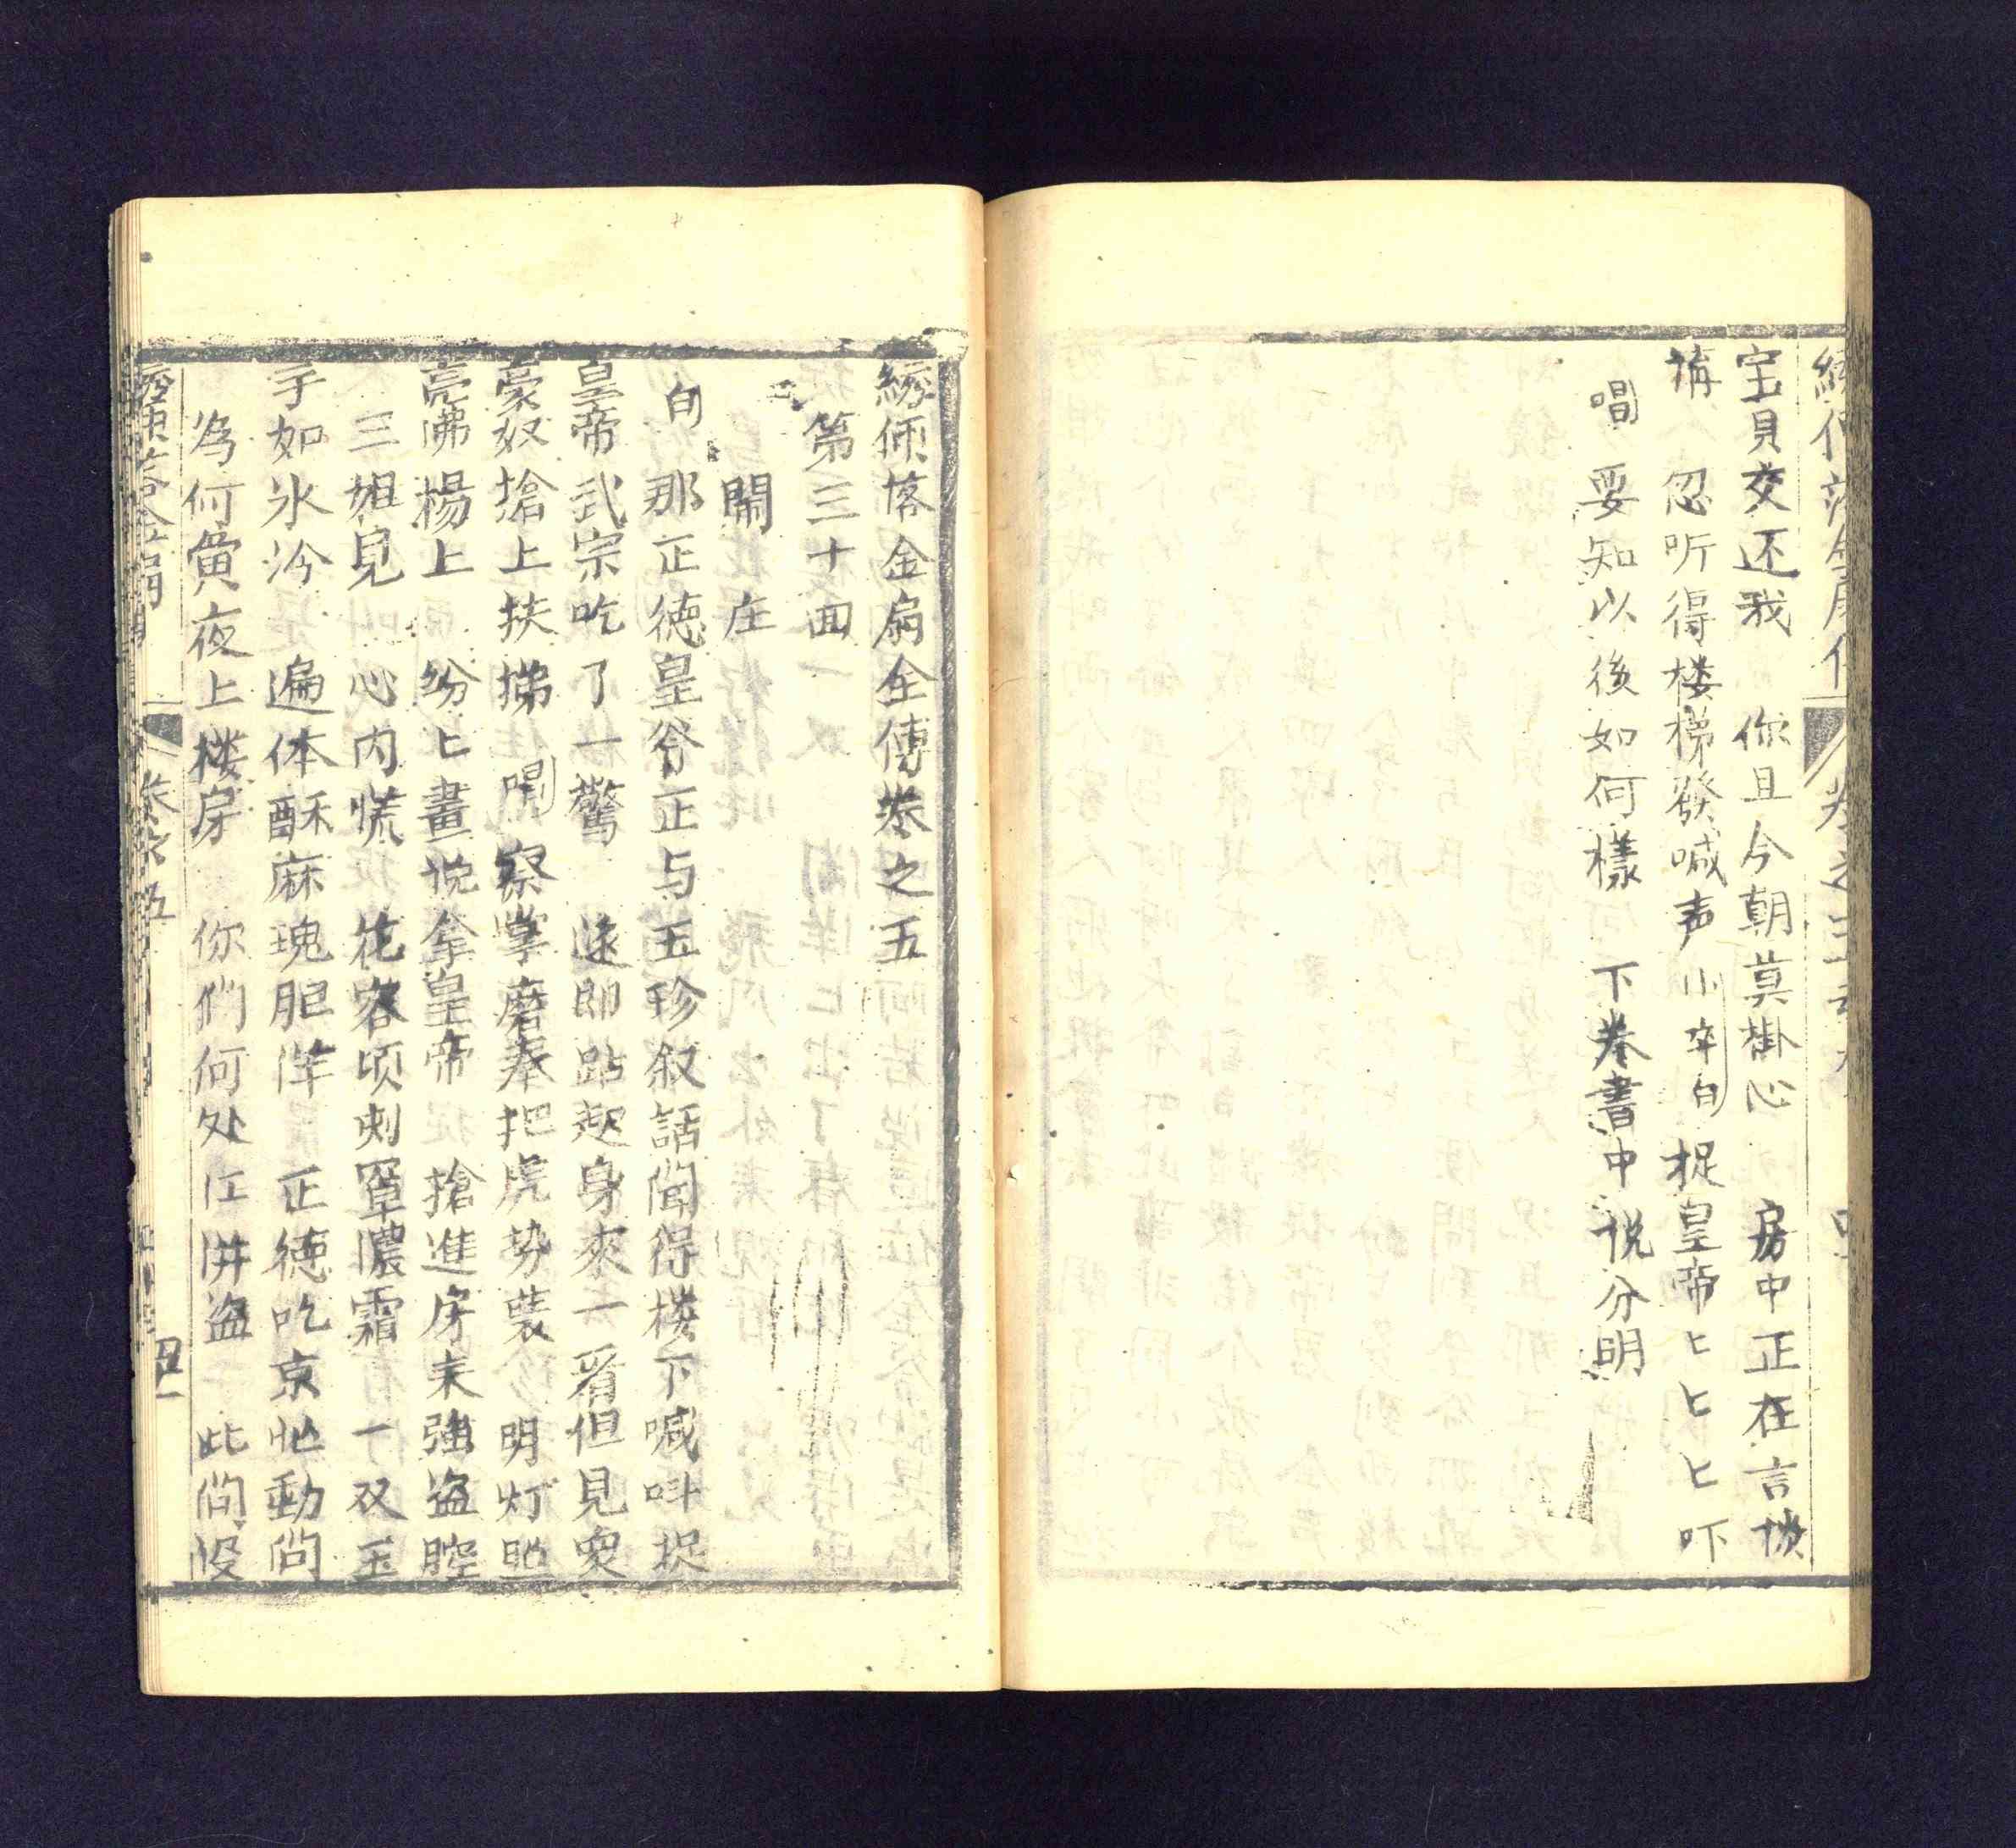 宝貝交还我　你且今朝莫掛心　房中正在言談
講　忽听得楼梯發喊声　小卒白　捉皇帝匕匕匕吓
唱　要知以後如何樣　下卷書中说分明
綉像落金扇全傳卷之五
第三十回
鬧庄
白　那正德皇爷正与玉珍叙話闻得楼下喊呌捉
皇帝武宗吃了一驚　遂即跕起身來一看但見眾
豪奴搶上扶梯　唱　察掌磨拳把虎势装　明灯照
亮佛楊上　纷匕畫悦拿皇帝　搶進房来強盗腔
三姐見　心内慌　花容顷刻罩濃霜　一双玉
手如氷冷　遍体酥麻瑰胆洋　正德吃京忙動问
為何黄夜上楼房　你们何处江洋盗　此间没
卷之五